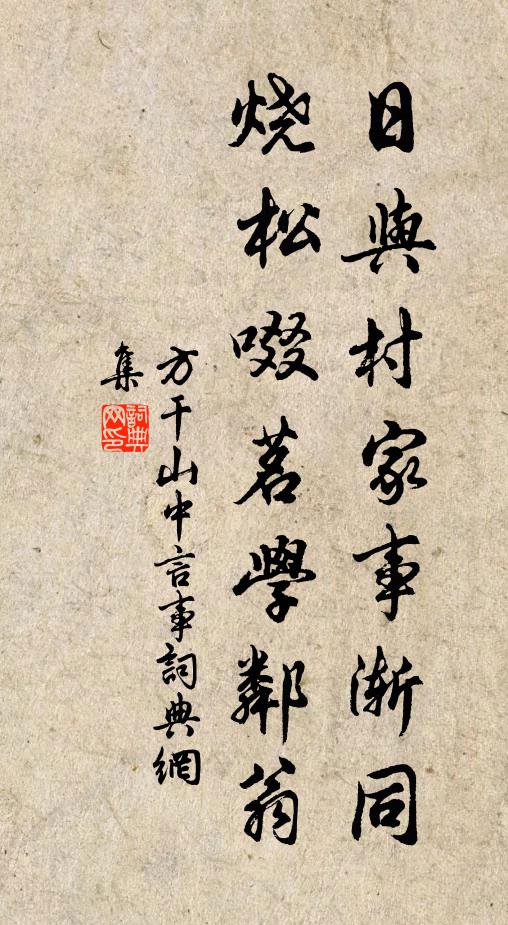 日與村家事漸同
烧松啜茗學鄰翁
方干山中言事詞典網
集
詞典
网印